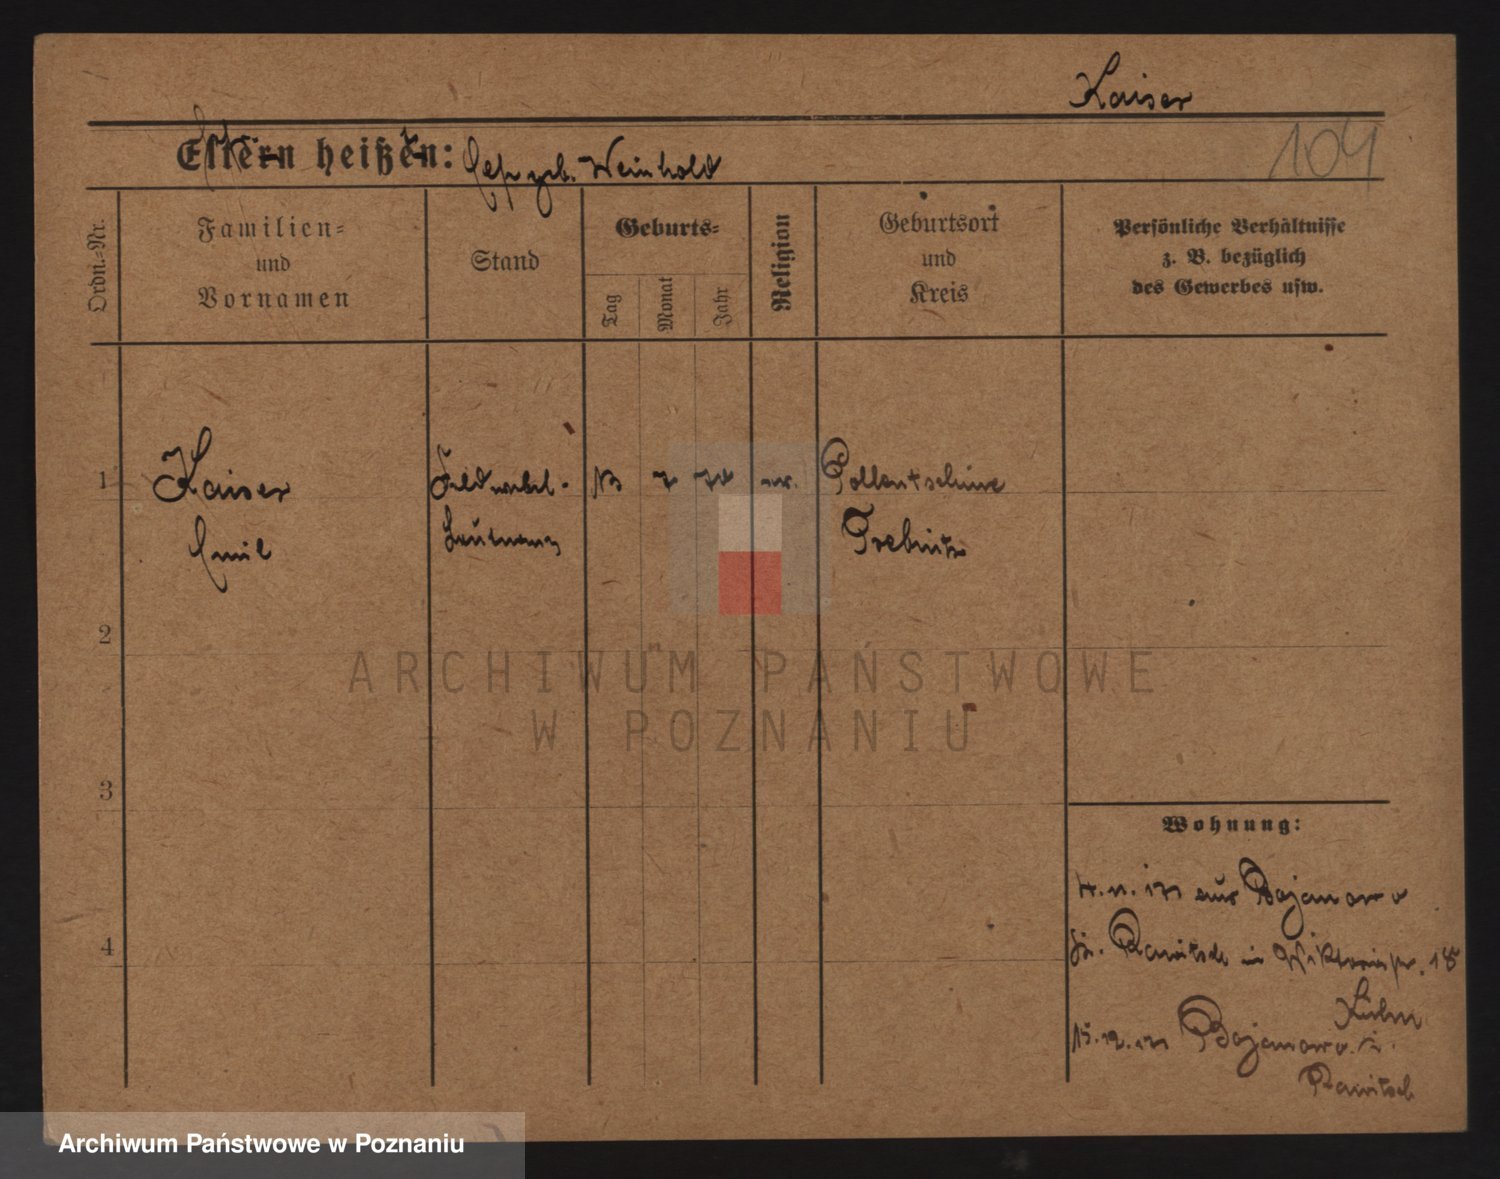 Kaiser
104
Eltern heißen: Ehefr. geb. Weinhold
Ordn.-Nr.
Familien-
und
Vornamen
Stand
Geburts-
Tag
Monat
Jahr
Religion
Geburtsort
und
Kreis
Persönliche Verhältnisse
z. B. bezüglich
des Gewerbes usw.
1
Kaiser
Emil
Feldwebel-
Leutnant
13 7 70 ev.
Pollentschine
Trebnitz
2
ARCHIWUM PAŃSTWOWE
W POZNANIU
3
Wohnung:
4. 11. aus Bojanowo
4
Kr. Rawitsch in Viktoriastr. 18
Kühn
15.12. Bojanowo
Rawitsch
Archiwum Państwowe w Poznaniu